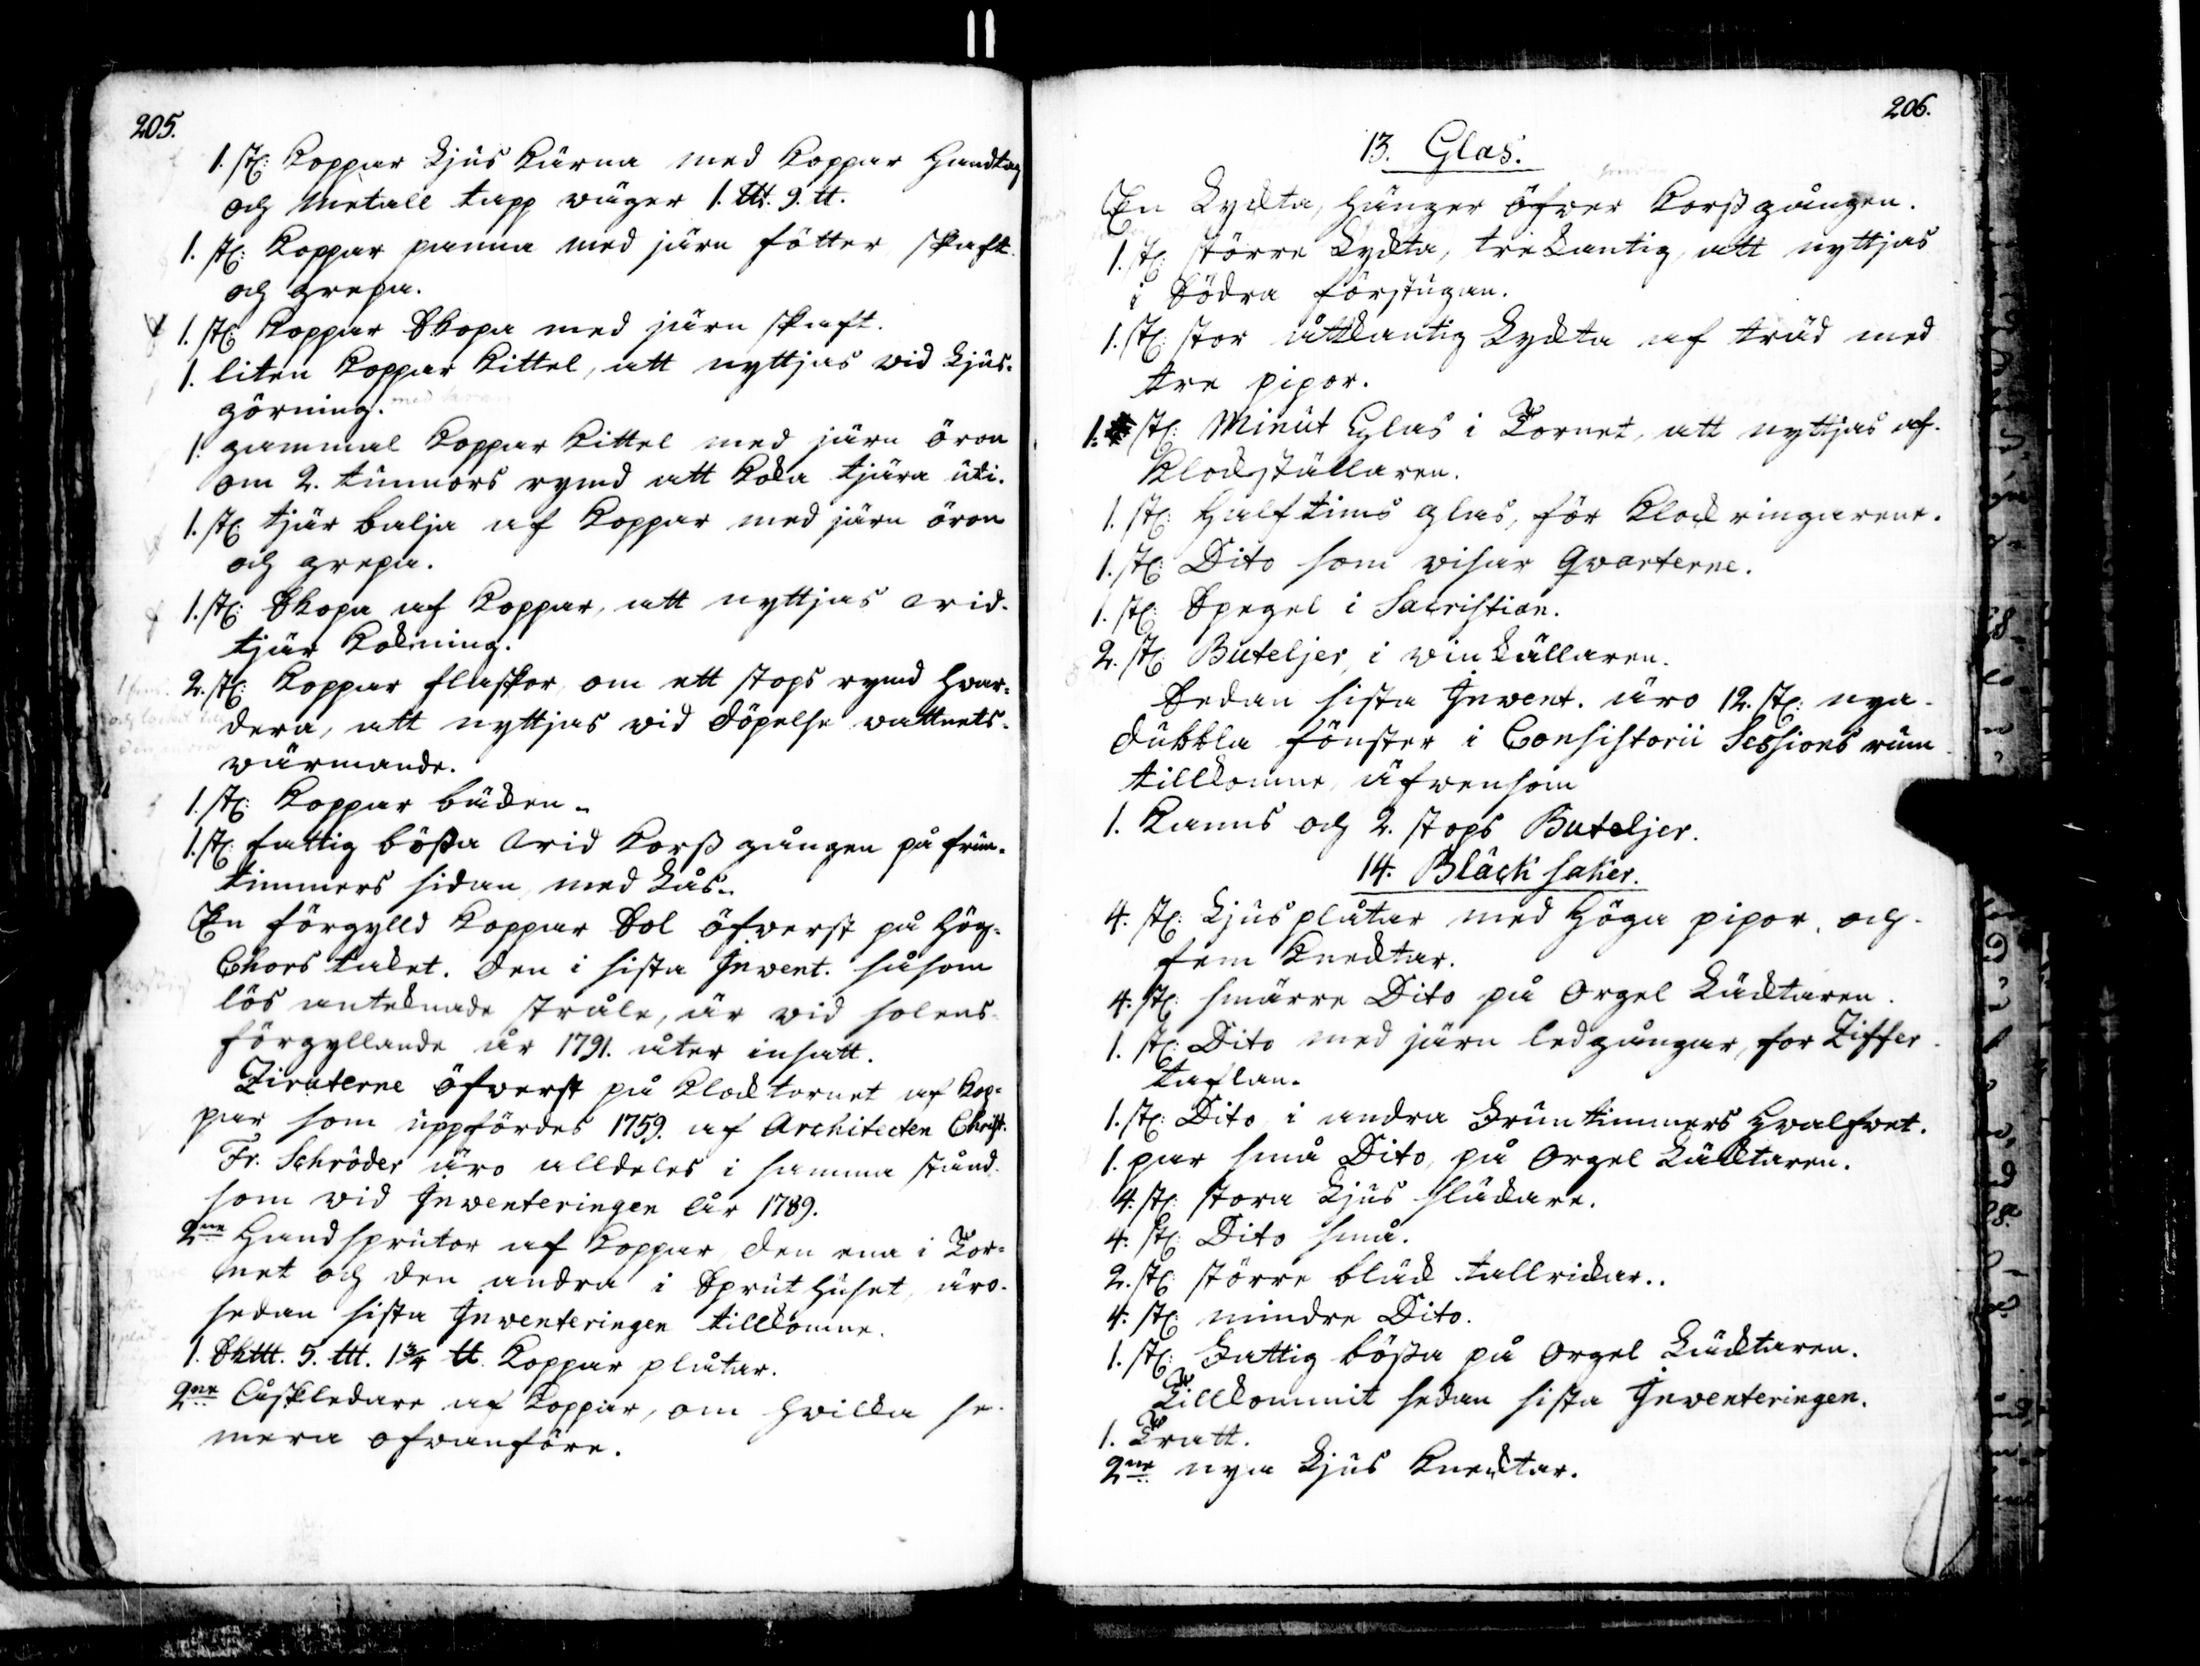 205.
1. st: Koppar Ljus Kärna med Koppar Handtag
och Metall tapp väger 1. ttt. 9. tt.
1. st: Koppar panna med järn fötter, skaft
och grepa.
1. st: Koppar Skopa med järn skaft.
1. liten Koppar Kittel, att nyttjas vid Ljus-
görning.
1. gammal Koppar Kittel med järn öron
om 2. tunnors rymd att Koka tjära uti.
1. st: tjär balja af Koppar med järn öron
och grepa.
1. st: Skopa af Koppar, att nyttjas vid
tjär Kokning.
2. st: Koppar flaskor, om ett stops rymd hvar-
dera, att nyttjas vid döpelse vattnets
värmande.
1. st: Koppar bäcken.
1. st: fattig bössa vid Korssgången på frun-
timmers sidan, med Lås.
En förgylld Koppar Sol öfverst på Hög-
Chors taket. Den i sista Invent. såsom
lös antecknade stråle, är vid solens
förgyllande år 1791. åter insatt.
Ziraterne öfverst på Klocktornet af Kop-
par som uppfördes 1759. af Architecten Christ.
Fr. Schröder äro alldeles i samma stånd
som vid Inventeringen År 1789.
2ne Handsprutor af Koppar, den ena i Tor-
net och den andra i Spruthuset, äro
sedan sista Inventeringen tillkomne.
1. Skttt. 5. ttt. 1 3/4 tt. Koppar plåtar.
2ne Åskledare af Koppar, om hvilka se
mera ofvanföre.
206.
13. Glas.
En Lyckta, hänger öfver Korssgången.
1. st: större Lyckta, trekantig, att nyttjas
i Södra förstugan.
1. st: stor åttkantig Lyckta af träd med
tre pipor.
1. st: Minut Glas i Tornet, att nyttjas af
Klockställaren.
1. st: Halftims glas, för Klockringarene.
1. st: Dito som visar Qvarterne.
1. st: Spegel i Sacristian.
2. st: Buteljer, i vinkällaren.
Sedan sista Invent. äro 12. st: nya
dubbla fönster i Consistorii Sessions rum
tillkomne, äfvensom
1. Kanns och 2. stops Buteljer.
14. Bläck saker.
4. st: Ljusplåtar med Höga pipor, och
fem Knecktar.
4. st: smärre Dito på Orgel Läcktaren.
1. st: Dito med järn ledgångar, for Ziffer
taflan.
1. st: Dito, i andra Fruntimmers Hvalfvet.
1. par små Dito, på Orgel Läcktaren.
4. st: stora Ljus släckare.
4. st: Dito små.
2. st: större bläck tallrickar..
4. st: mindre Dito.
1. st: Fattig bössa på Orgel Läcktaren.
Tillkommit sedan sista Inventeringen.
1. Tratt.
2ne nya Ljus Knecktar.